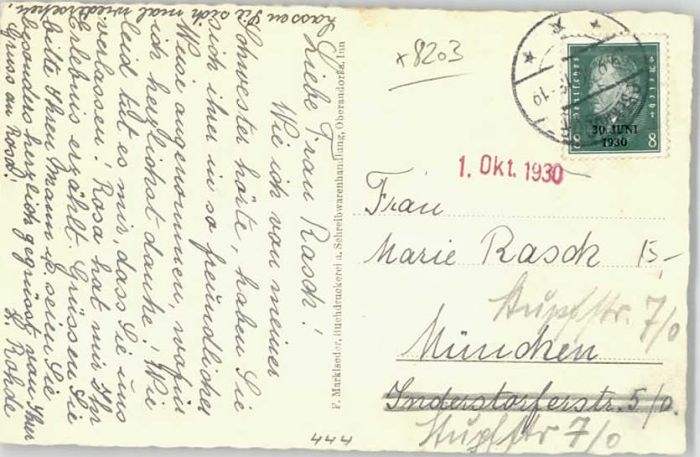 Liebe Frau Rasch!
Wie ich von meiner
Schwester hörte, haben Sie
sich ihrer in so freundlicher
Weise angenommen, wofür
ich herzlichst danke! Wie
leid tut es mir, dass Sie uns
verlassen! Rosa hat mir Ihr
Erlebnis erzählt. Grüssen Sie
bitte Ihren Mann u. seien Sie
besonders herzlich gegrüsst von Ihrer
Gruss an Rosa! L. Rohde
Lassen Sie sich mal wiedersehen!
F. Marklseder, Buchdruckerei u. Schreibwarenhandlung, Oberaudorf a. Inn
x 8203
30. JUNI
1930
8 8
1. Okt. 1930
Frau
Marie Rasch 15-
Stupfstr. 7/0
München
Inderstorferstr. 5/0.
Stupfstr 7/0
444